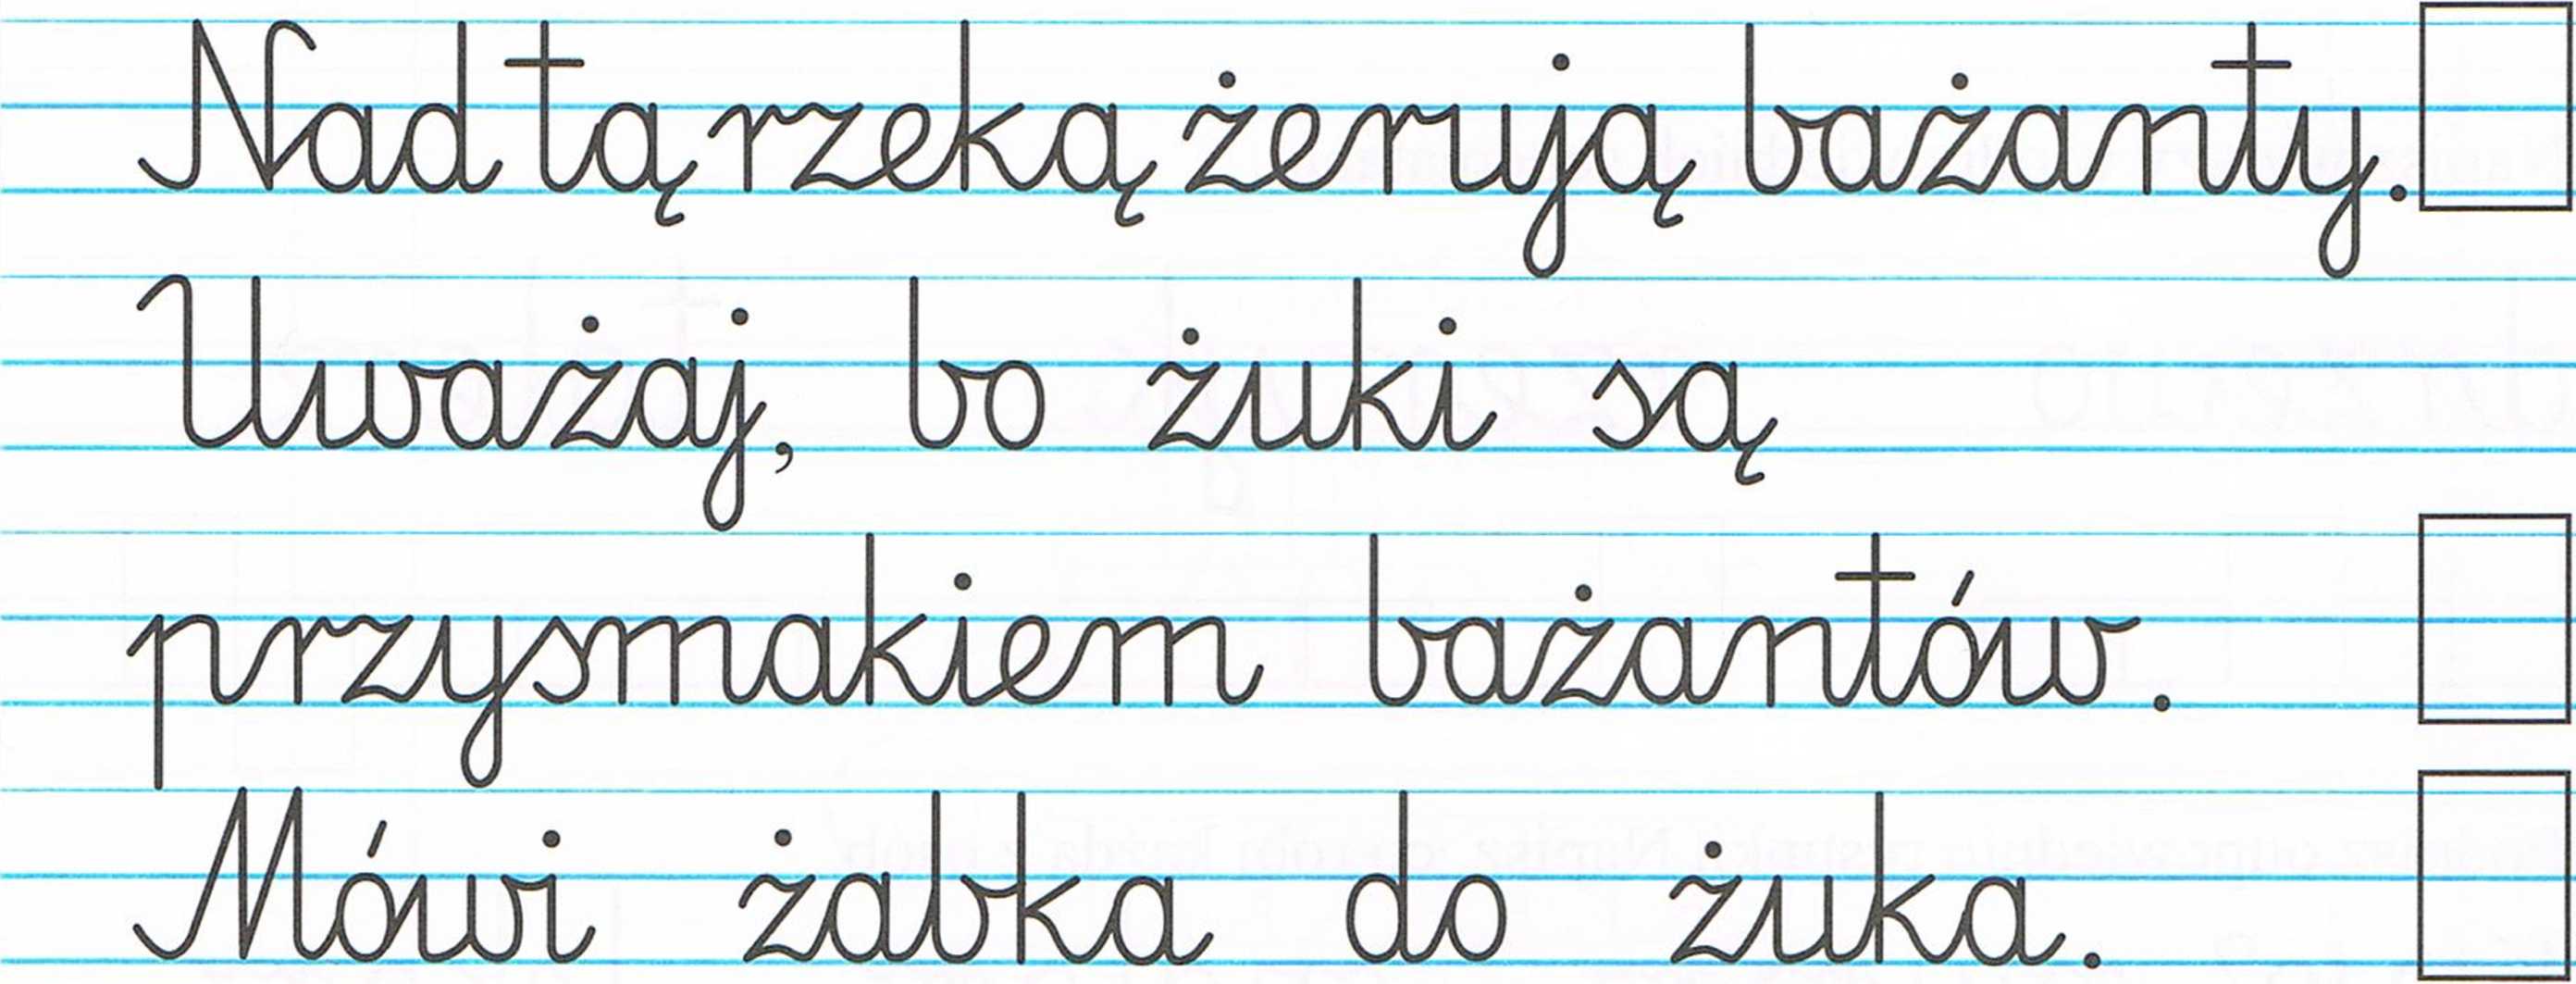 Nad tą rzeką żerują bażanty.
Uważaj, bo żuki są
przysmakiem bażantów.
Mówi żabka do żuka.